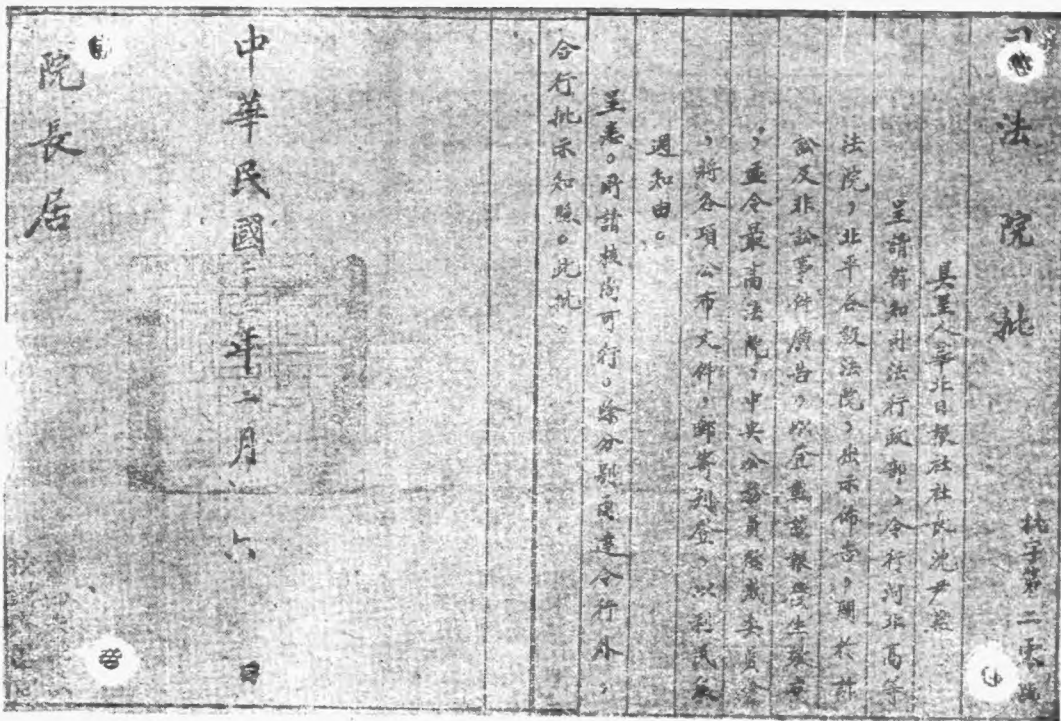 司法院批
批字第二零號
具呈人華北日報社社長沈尹默
呈請符知司法行政部、令行河北高等
法院,北平各級法院,出示佈告,關於訴
訟及非訟事件廣告,以登載該報發生效力
,並令最高法院,中央公務員懲戒委員會
,將各項公布文件,郵寄刊登、以利民眾
週知由。
呈悉。所請核尚可行。除分別函達令行外,
合行批示知照。此批。
中華民國二十二年二月六日
院長居